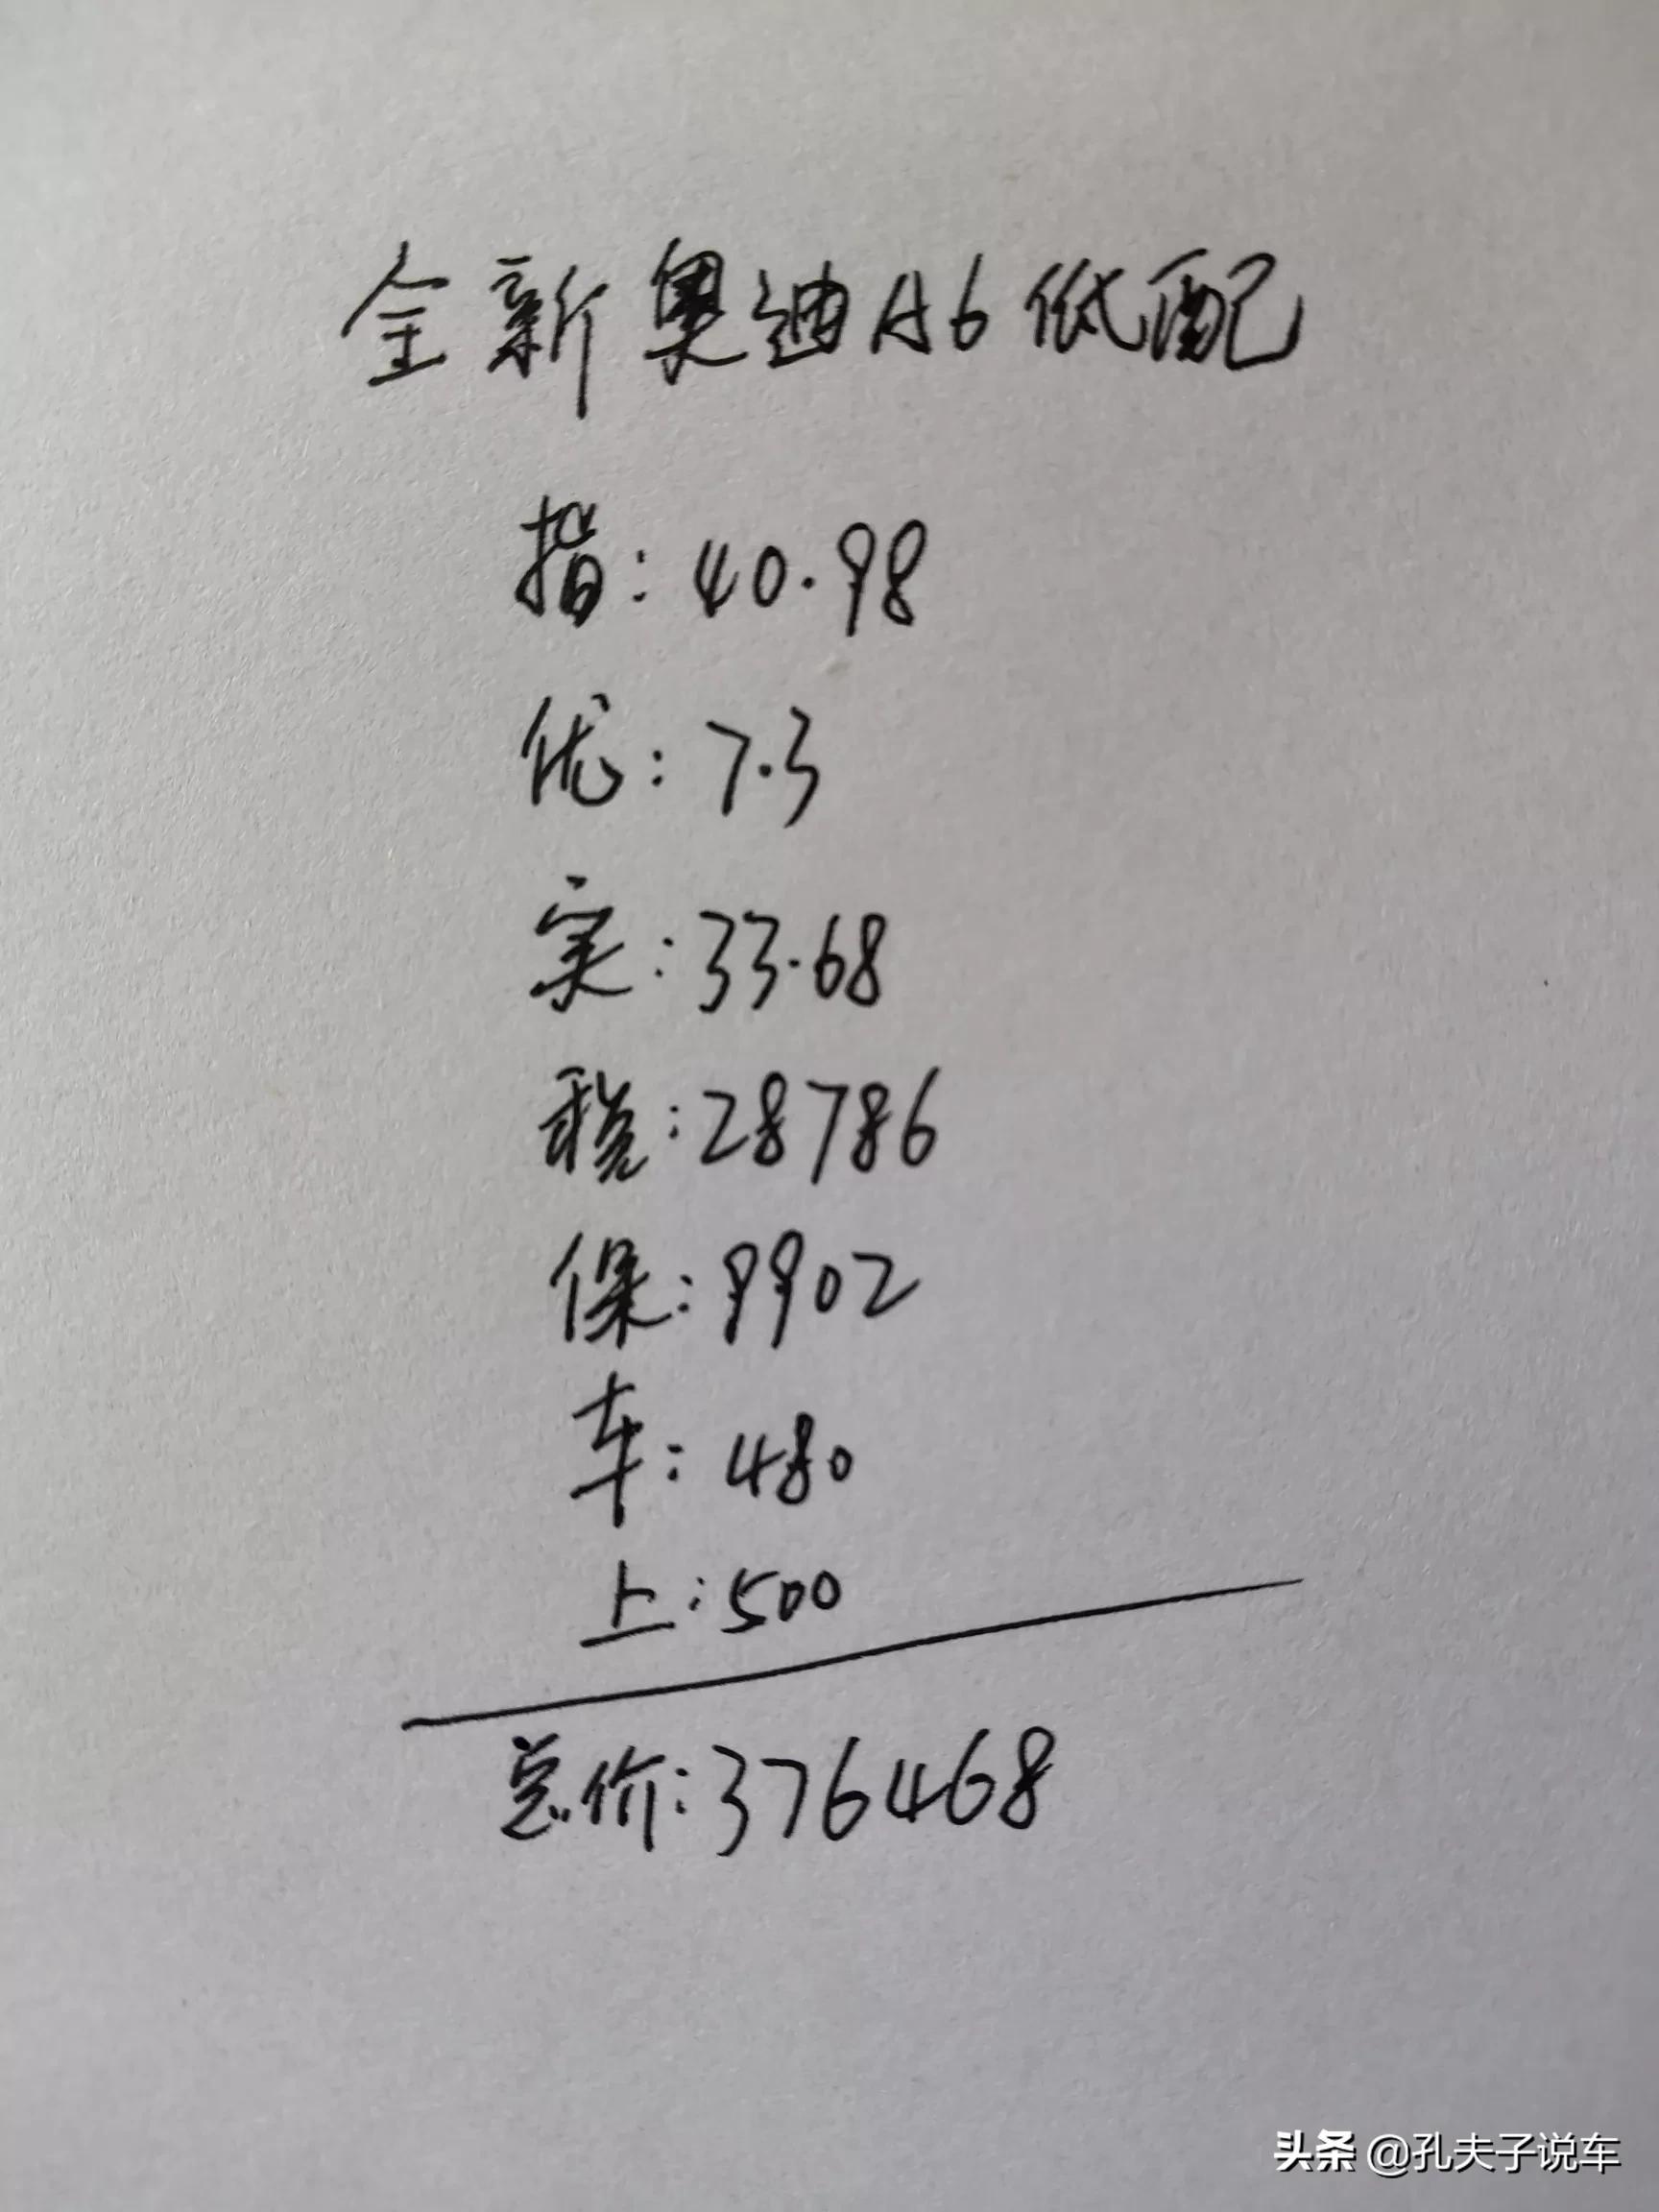 全新奥迪A6低配
指:40.98
优:7.3
实:33.68
税:28786
保:9902
车:480
上:500
总价:376468
头条 @孔夫子说车